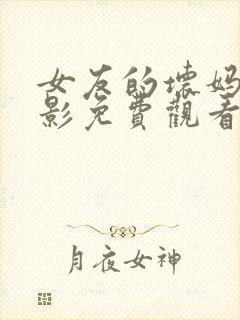 女友的坏妈
影免費觀看
月夜女神